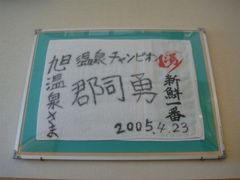 旭温泉さま
温泉チャンピオン
郡司勇
新鮮一番
2005.4.23